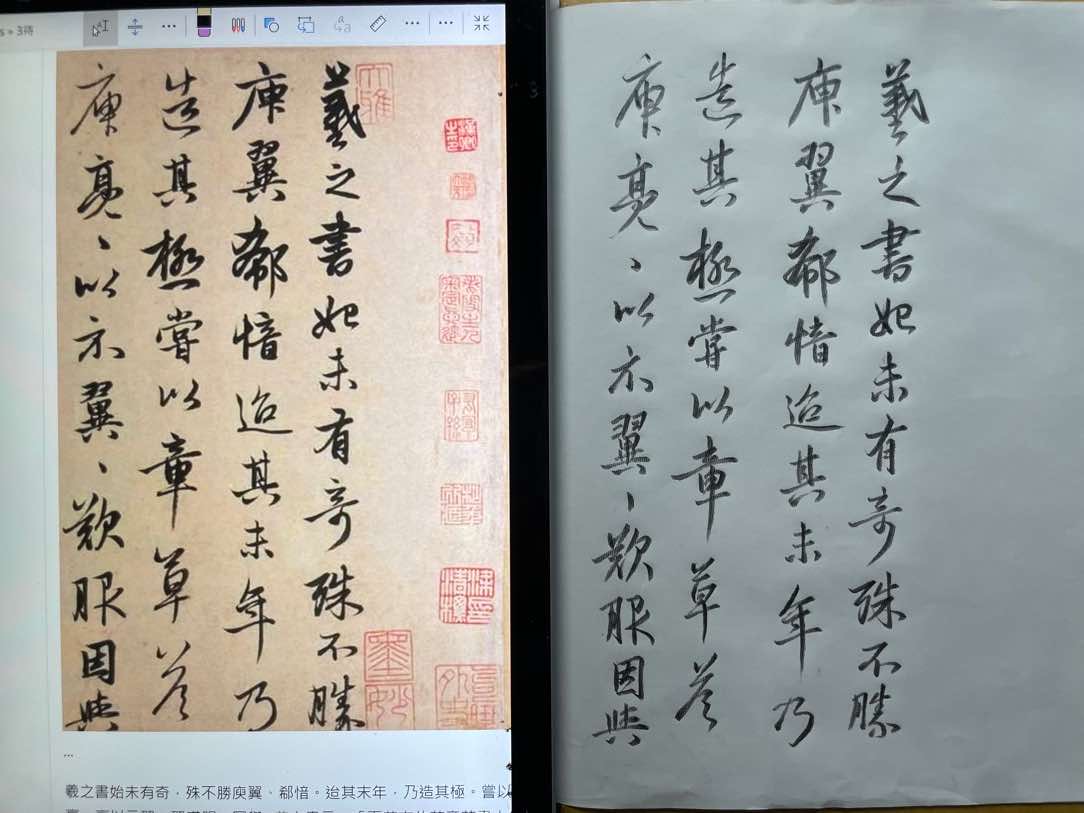 s » 3待
羲之書始未有奇殊不勝
庾翼郗愔迨其末年乃
造其極嘗以章草荅
庾亮、以示翼、歎服因與
羲之書始未有奇，殊不勝庾翼、郗愔。迨其末年，乃造其極。嘗以
羲之書始未有奇殊不勝
庾翼郗愔迨其末年乃
造其極嘗以章草荅
庾亮、以示翼、歎服因與